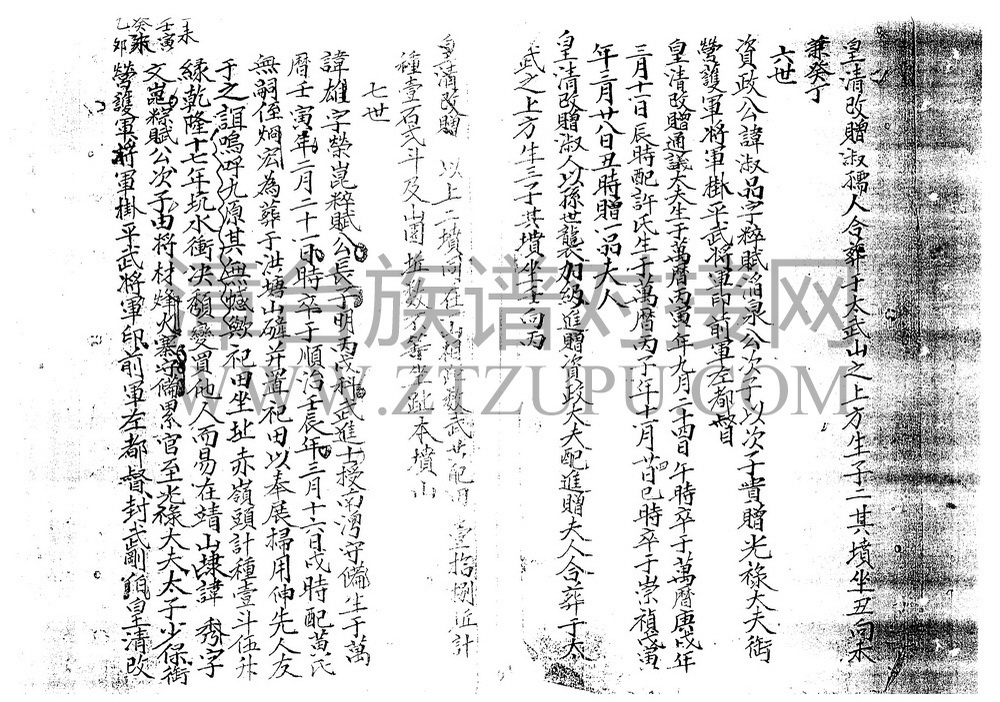 皇清改贈淑孺人合葬于大武山之上方生子二其墳坐丑向未
兼癸丁
六世
資政公諱淑品字粹賦省泉公次子以次子貴贈光祿大夫銜
營護軍將軍掛平武將軍印前軍左都督
皇清改贈通議大夫生于萬曆丙寅年九月二十四日午時卒于萬曆庚戌年
三月十一日辰時配許氏生于萬曆丙子年十一月廿日巳時卒于崇禎戊寅
年三月廿八日丑時贈一品夫人
皇清改贈淑人以孫世襲加級進贈資政大夫配進贈夫人合葬于太
武之上方生三子其墳坐壬向丙
皇清改贈 以上二墳同在 山 武 配 壹拾捌 計
種壹百弍斗及山園 數不等坐趾本墳山
七世
諱雄字榮崑粹賦公長子明丙戌科武進士授南灣守備生于萬
曆壬寅年二月二十一日 時卒于順治壬辰年三月十六日戌時配黃氏
無嗣侄炯宏為葬于洪塘山 并置祀田以奉展掃用伸先人友
于之誼嗚呼九原其無憾歟祀田坐址赤嶺頭計種壹斗伍升
緣乾隆十七年坑水衝決額變買他人而易在靖山埭諱秀字
文崑粽賦公次子由將材 火寨守備累官至光祿大夫太子少保銜
營護軍將軍掛平武將軍印前軍左都督封武剛 皇清改
丁未
壬寅
癸未
乙卯
漳台族谱对接网
WWW.ZTZUPU.COM